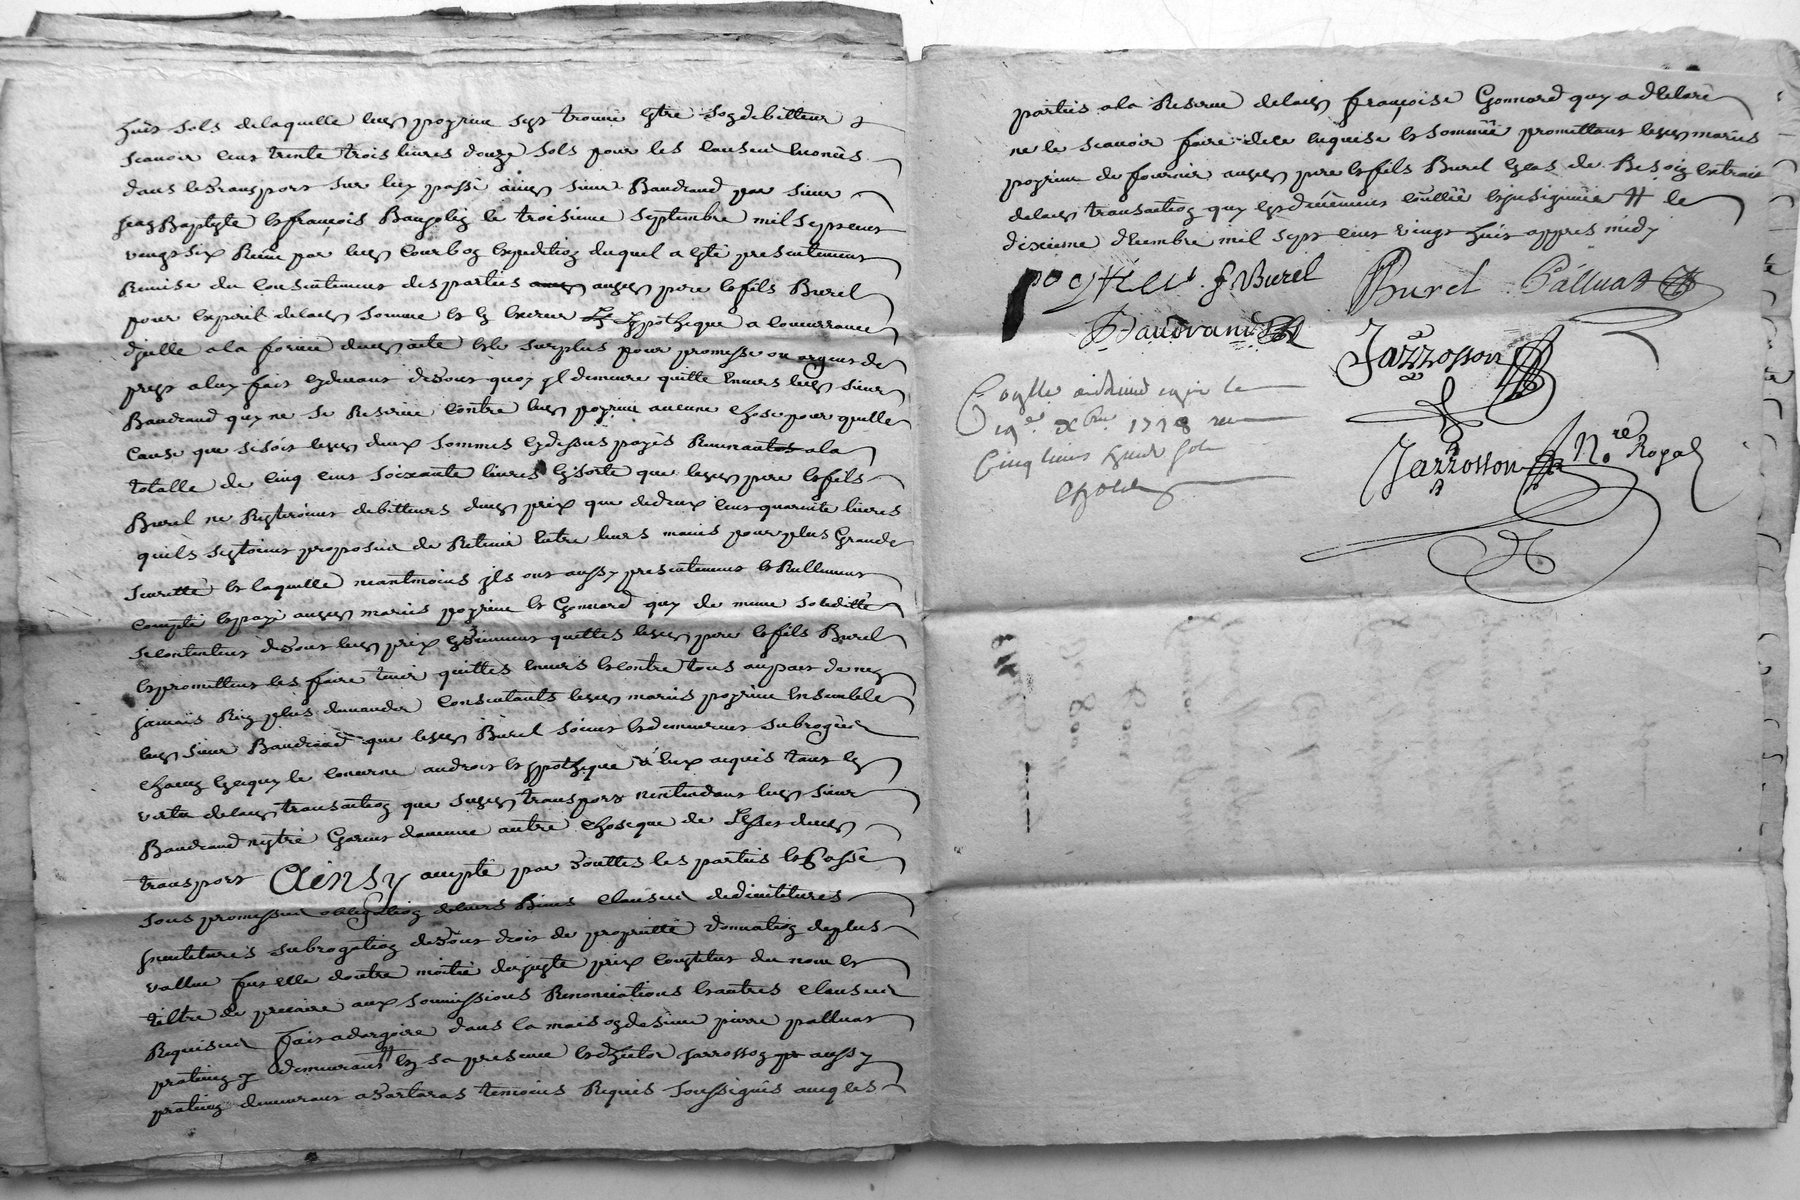 huit sols de laquelle led poyrieu sest trouvé estre son debitteur
scavoir cent trente trois livres douze sols pour les causes enoncés
dans le transport sur luy passé aud sieur Baudrand par sieur
Jean Baptiste et françois Baujolin le troisieme septembre mil sept cent
vingt six Receu par led Courbon expedition duquel a esté presentement
Remise du consentement des parties auxd pere et fils Burel
pour lesperit delad somme et hypotheque a concurrance
dicelle a la forme dud acte et le surplus pour promesse ou argent de
prest a luy fait cy devant de tout quoy il demeure quitte envers led sieur
Baudrand quy ne se Reserve contre led poyrieu aucune chose pour quelle
cause que se soit lesd deux sommes cy dessus payés Revenantes a la
totalle de cinq cent soixante livres en sorte que lesd pere et fils
Burel ne Resteroint debitteurs dud prix que de deux cent quarante livres
quils sestoint proposés de Retenir entre leurs mains pour plus grande
seurette et laquelle neantmoins ils ont aussy presentement et Rellement
compté et payé auxd mariés poyrieu et Gonnord quy de meme solidité
se contentent de tout led prix en tiennent quittes lesd pere et fils Burel
et promettent les faire tenir quittes envers et contre tous au pact de ne
jamais Rien plus demander consentants lesd mariés poyrieu ensemble
led sieur Baudrand que lesd Burel soient et demeurent subrogés
chacun en ce quy le concerne au droit et hypotheque a eux acquis tant en
vertu delad transaction que susd transport nentendant led sieur
Baudrand estre garent daucune autre chose que de leffet dud
transport Ainsy accepté par touttes les parties et passé
sous promesses obligation de leurs Biens clauses dedevetitures
investitures subrogation de tout droit de proprietté donnation de plus
vallue fut elle doutre moitié du juste prix constitut du nom et
tiltre de precaire aux soumissions Renonciations et autres clauses
Requises fait a dargoire dans la maison de sieur pierre palluat
praticien y demeurant en sa presence et d'hector Jarrosson aussy
praticien demeurant a tartaras temoins Requis soussignés avec les
parties a la Reserve delad françoise Gonnord quy a declaré
ne le scavoir faire de ce enquise et sommée promettant lesd mariés
poyrieu de fournir auxd pere et fils Burel en cas de Besoin extrait
delad transaction quy est devenue
dixieme decembre mil sept cent vingt huit appres midy
J Burel Burel Palluat
Baudrand
Jazzosson
Jazzosson No.re Royal
Con.lle a
19e xbre 1728
Cinq livres huit sols